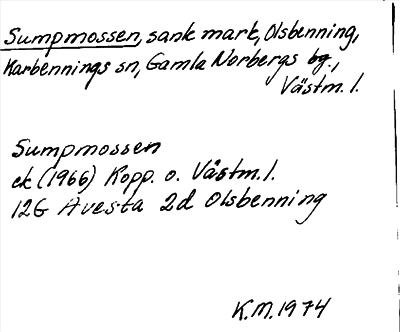 Sumpmossen, sank mark, Olsbenning,
Karbennings sn, Gamla Norbergs bg.,
Västm. l.
Sumpmossen
ek (1966) Kopp. o. Västm. l.
12G Avesta 2d Olsbenning
K.M. 1974